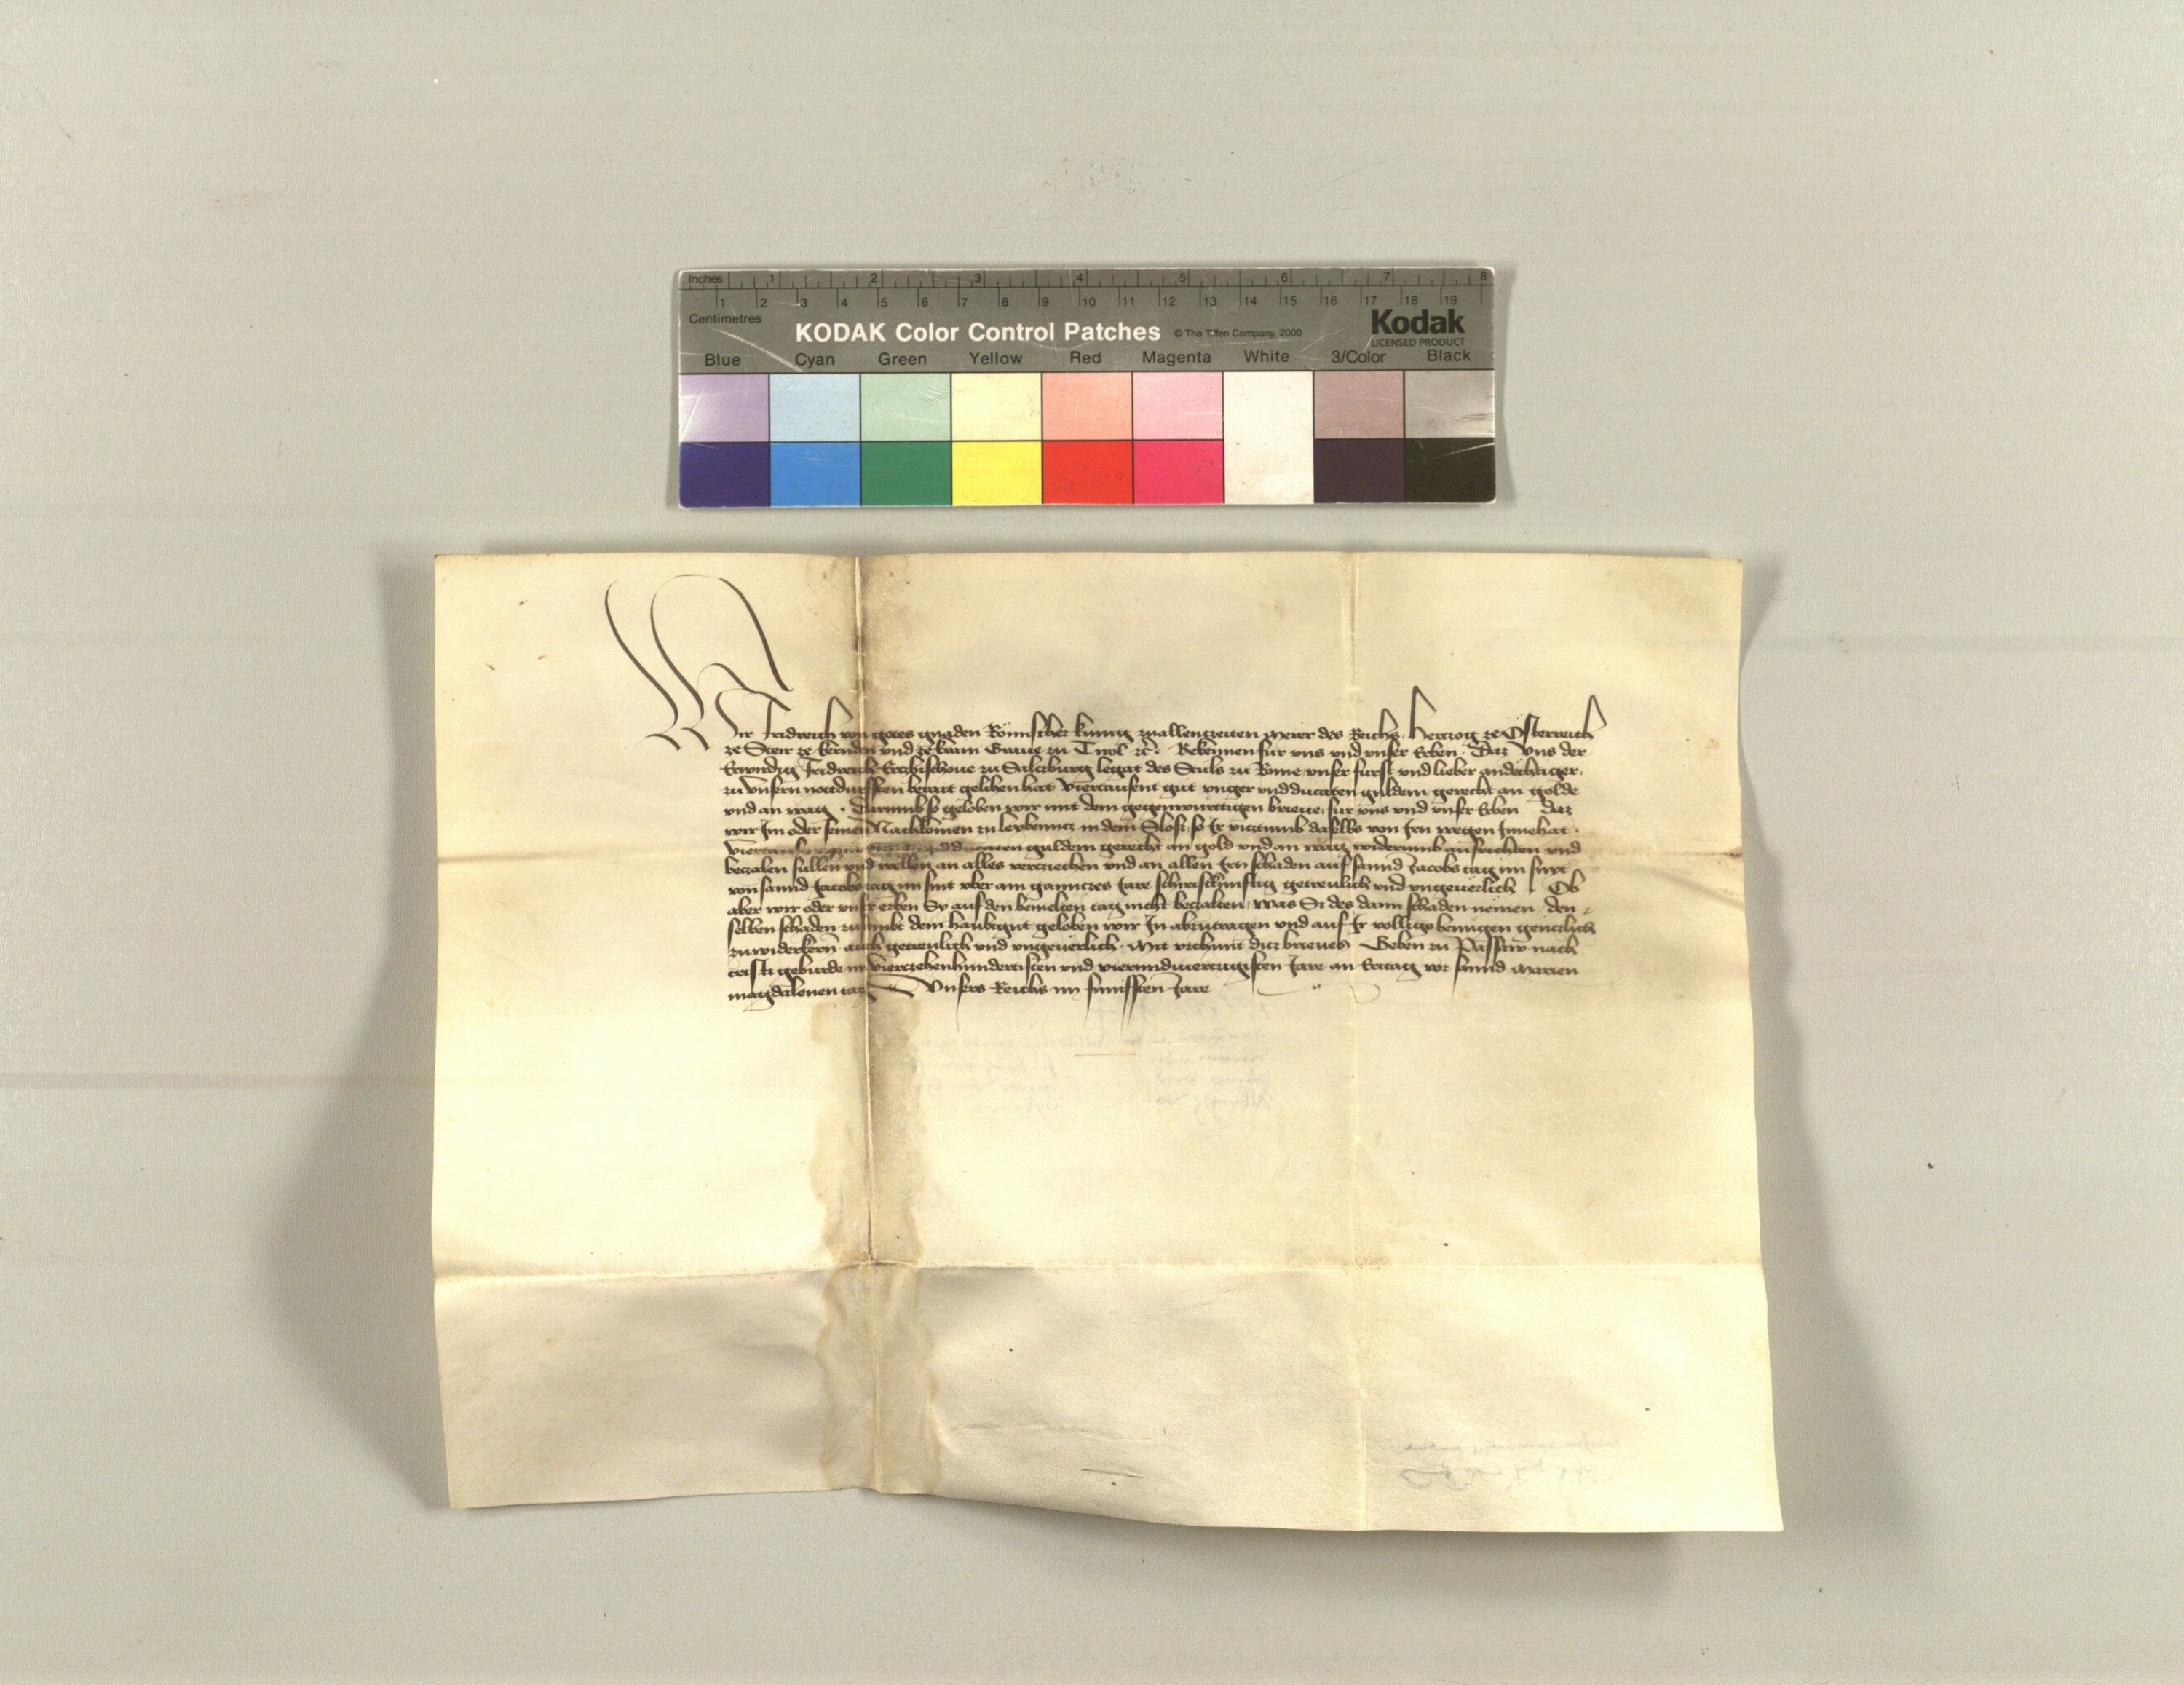 Inches 1 2 3 4 5 6 7 8
1 2 3 4 5 6 7 8 9 10 11 12 13 14 15 16 17 18 19
Centimetres
KODAK Color Control Patches © The Tiffen Company, 2000 Kodak
LICENSED PRODUCT
Blue Cyan Green Yellow Red Magenta White 3/Color Black
Wir Fridreich von gotes gnaden Römischer kunig zuallenczeiten merer des Reichs Herczog ze Österreich
ze Steir ze kernden und ze krain Graue zu Tirol etc. Bekennen fur uns und unser Erben Daz uns der
Erwirdig Fridreich Erczbischoue zu Salczburg legat des Stuls zu Rome unser furst und lieber andechtiger
zu unsern notdurfften berait gelihen hat viertausent gut unger und ducaten guldein gerecht an golde
und an wag. Darumb so geloben wir mit dem gegenwurttigen brieue fur uns und unser Erben daz
wir Im oder seinen Nachkomen zu leybenncz in dem Slos so Ir vicztumb daselbs von Irn wegen Innehat
guldein gerecht an gold und an wag widerumb ausrichten und
beczalen sullen und wellen an alles vercziehen und an allen Irn schaden auf sannd Jacobs tag im snit
von sannd Jacobs tag im snit uber ain gannczes Jare schiristkunftig getreulich und ungeuerlich. Ob
aber wir oder unser erben Sy auf den bemelten tag nicht beczalten, was Si des dann schaden nemen den
selben schaden zusambt dem haubtgut geloben wir In abzutragen und auf Ir volligs benugen genczlich
zuwiderkern auch getreulich und ungeuerlich. Mit urchunt dicz brieues Geben zu Passaw nach
cristi geburde im vierczehenhundertisten und vierundvierczigisten Jare an Eritag vor sannd Marien
magdalenen tag Unsers Reichs im funifften Jare